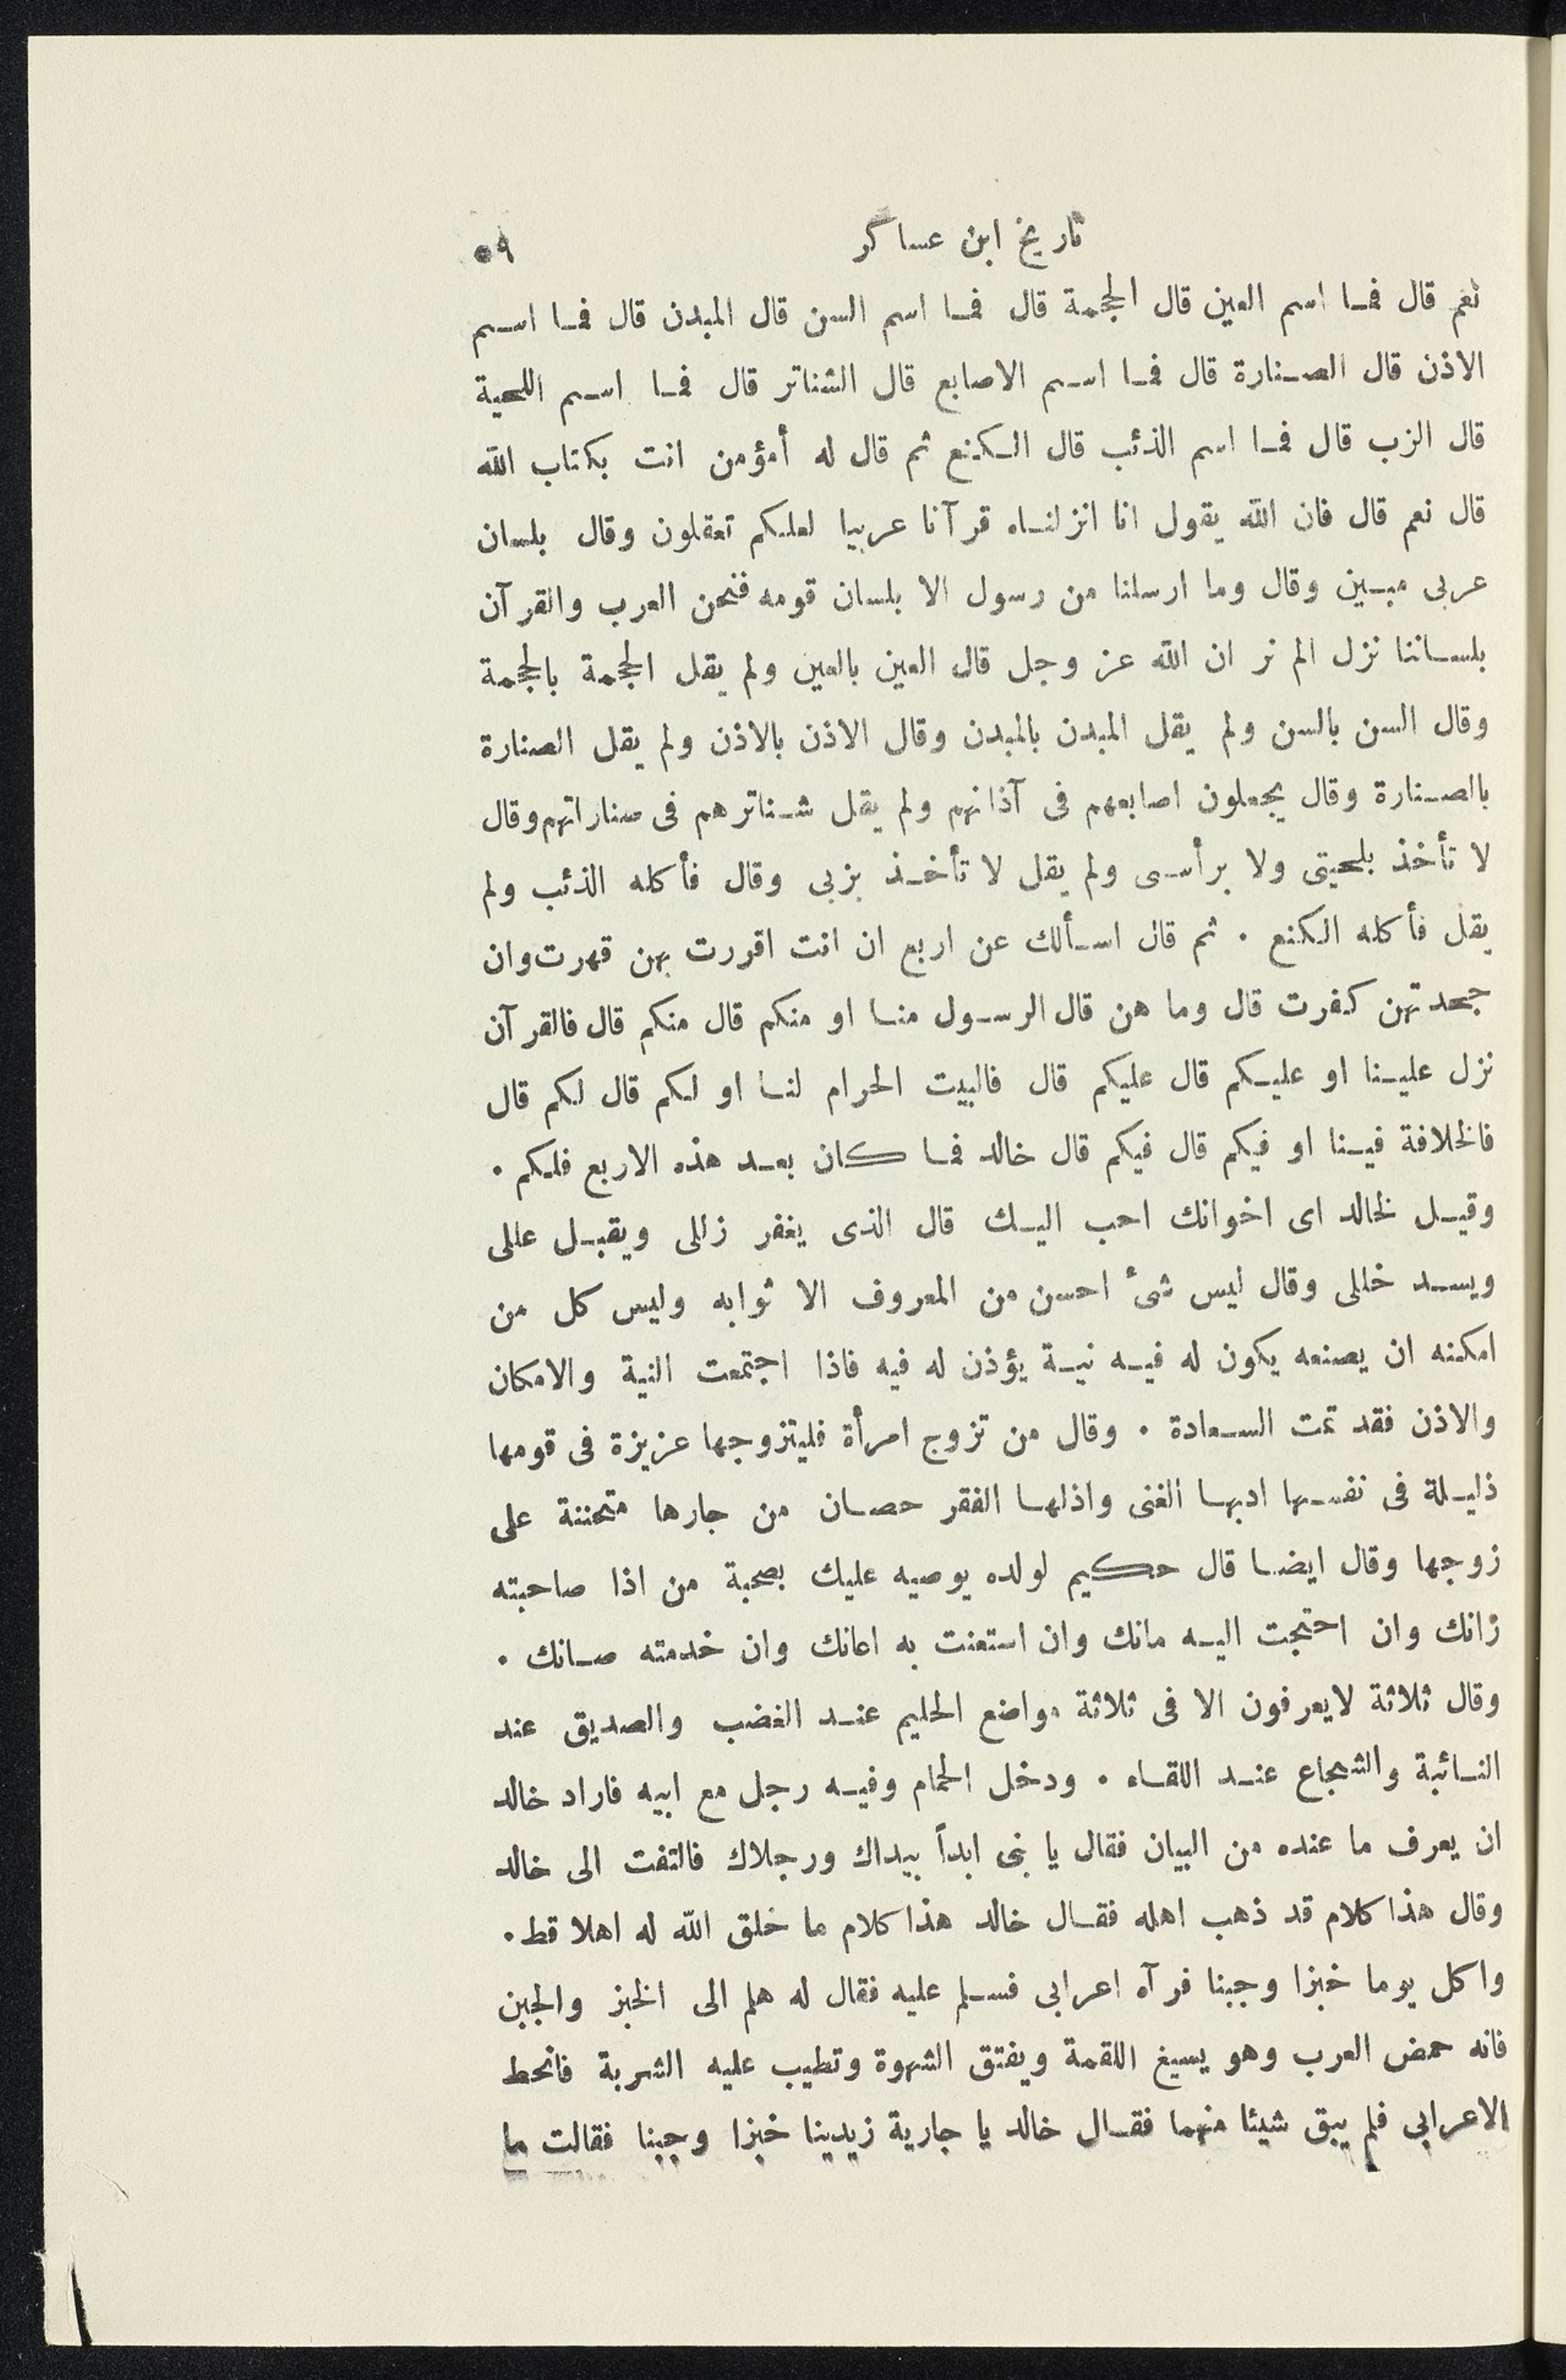 تاريخ ابن عساكر
٥٩
نعم قال فما اسم العين قال الجحمة قال فما اسم السن قال المبدن قال فما اسم
الاذن قال الصنارة قال فما اسم الاصابع قال الشناتر قال فما اسم اللحية
قال الزب قال فما اسم الذئب قال الكنع ثم قال له أمؤمن انت بكتاب الله
قال نعم قال فان الله يقول انا انزلناه قرآنا عربيا لعلكم تعقلون وقال بلسان
عربى مبين وقال وما ارسلنا من رسول الا بلسان قومه فنحن العرب والقرآن
بلساننا نزل الم تر ان الله عز وجل قال العين بالعين ولم يقل الجحمة بالجحمة
وقال السن بالسن ولم يقل المبدن بالمبدن وقال الاذن بالاذن ولم يقل الصنارة
بالصنارة وقال يجعلون اصابعهم فى آذانهم ولم يقل شناترهم فى صناراتهم وقال
لا تأخذ بلحيتى ولا برأسى ولم يقل لا تأخذ بزبى وقال فأكله الذئب ولم
يقل فأكله الكنع . ثم قال اسألك عن اربع ان انت اقررت بهن قهرت وان
جحدتهن كفرت قال وما هن قال الرسول منا او منكم قال منكم قال فالقرآن
نزل علينا او عليكم قال عليكم قال فالبيت الحرام لنا او لكم قال لكم قال
فالخلافة فينا او فيكم قال فيكم قال خالد فما كان بعد هذه الاربع فلكم .
وقيل لخالد اى اخوانك احب اليك قال الذى يغفر زللى ويقبل عللى
ويسد خللى وقال ليس شئ احسن من المعروف الا ثوابه وليس كل من
امكنه ان يصنعه يكون له فيه نية يؤذن له فيه فاذا اجتمعت النية والامكان
والاذن فقد تمت السعادة . وقال من تزوج امرأة فليتزوجها عزيزة فى قومها
ذليلة فى نفسها ادبها الغنى واذلها الفقر حصان من جارها متحننة على
زوجها وقال ايضا قال حكيم لولده يوصيه عليك بصحبة من اذا صاحبته
زانك وان احتجت اليه مانك وان استعنت به اعانك وان خدمته صانك .
وقال ثلاثة لايعرفون الا فى ثلاثة مواضع الحليم عند الغضب والصديق عند
النائبة والشجاع عند اللقاء . ودخل الحمام وفيه رجل مع ابيه فاراد خالد
ان يعرف ما عنده من البيان فقال يا بنى ابدأ بيداك ورجلاك فالتفت الى خالد
وقال هذا كلام قد ذهب اهله فقال خالد هذا كلام ما خلق الله له اهلا قط .
واكل يوما خبزا وجبنا فرآه اعرابى فسلم عليه فقال له هلم الى الخبز والجبن
فانه حمض العرب وهو يسيغ اللقمة ويفتق الشهوة وتطيب عليه الشربة فانحط
الاعرابى فلم يبق شيئا منهما فقال خالد يا جارية زيدينا خبزا وجبنا فقالت ما